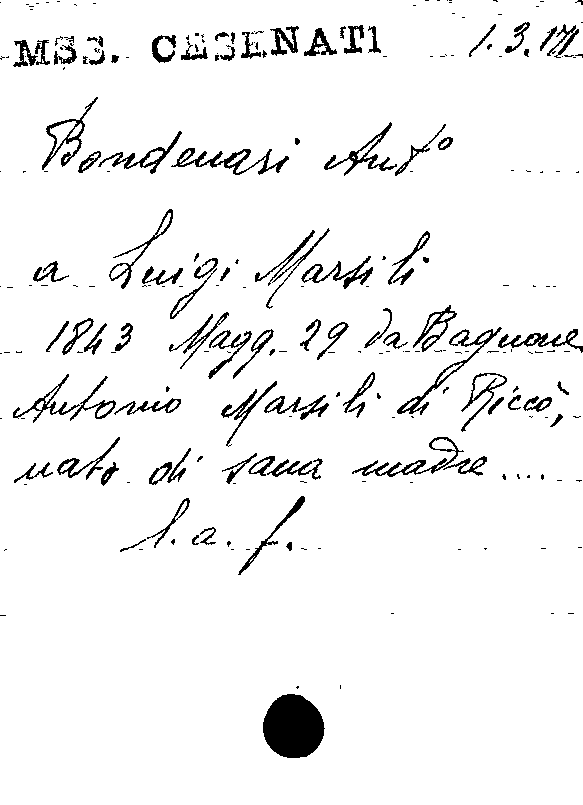 MSS. CESENATI 1.3.171
Bondenari Ant°
a Luigi Marsili
1843 Magg. 29 da Bagnone
Antonio Marsili di Riccò,
nato di sana madre....
l. a. f.